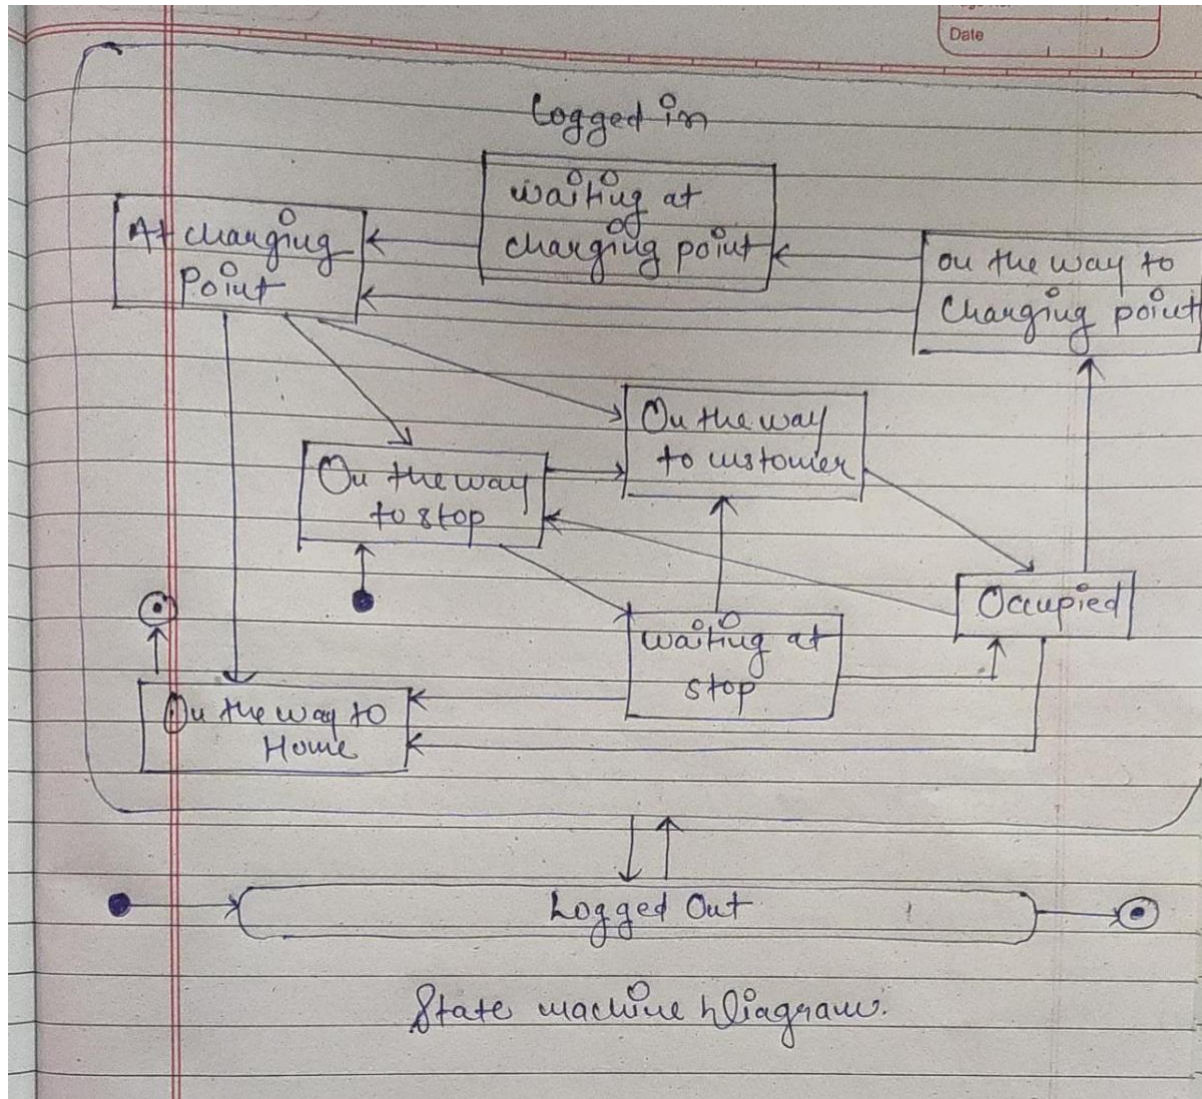 Date
Logged in
waiting at
charging point
At charging
Point
on the way to
Charging point
On the way
to customer
On the way
to stop
Occupied
waiting at
stop
On the way to
Home
Logged Out
State machine Diagram.